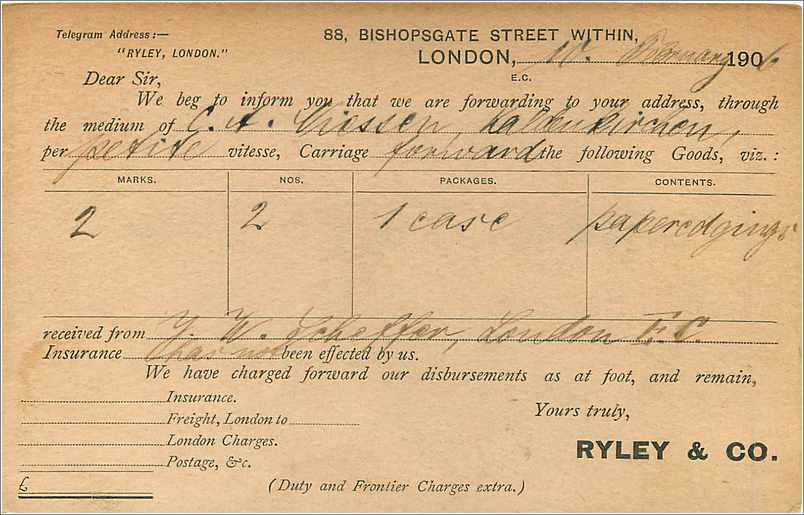 Telegram Address:—
"RYLEY, LONDON."
88, BISHOPSGATE STREET WITHIN,
LONDON, February 1906
E.C.
Dear Sir,
We beg to inform you that we are forwarding to your address, through
the medium of C. A. Niessen, Kaldenkirchen,
per petite vitesse, Carriage forward the following Goods, viz.:
MARKS. NOS. PACKAGES. CONTENTS.
2 2 1 case paperedgings
received from J. W. Scheffer, London E.C.
Insurance has not been effected by us.
We have charged forward our disbursements as at foot, and remain,
Insurance.
Freight, London to
London Charges.
Postage, &c.
£
Yours truly,
RYLEY & CO.
(Duty and Frontier Charges extra.)